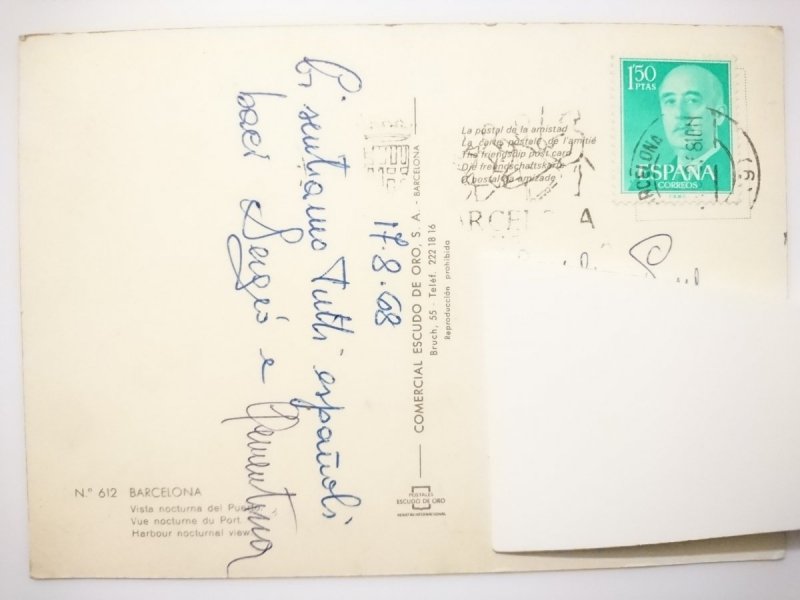 17.8.68
Ci sentiamo tutti españoli
baci Sergio e Clementina
Nº 612 BARCELONA
Vista nocturna del Puerto
Vue nocturne du Port
Harbour nocturnal view
COMERCIAL ESCUDO DE ORO, S. A. - BARCELONA
Bruch, 55 - Teléf. 222 18 16
Reproducción prohibida
POSTALES
ESCUDO DE ORO
La postal de la amistad
La carte postale de l'amitié
The friendship post card
Die freundschaftskarte
O postal da amizade
BARCELONA
1'50
PTAS
ESPAÑA
CORREOS
BARCELONA